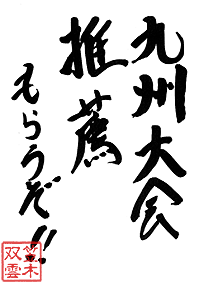 九州大会
推薦
もらうぞ!!
笠木
双雲